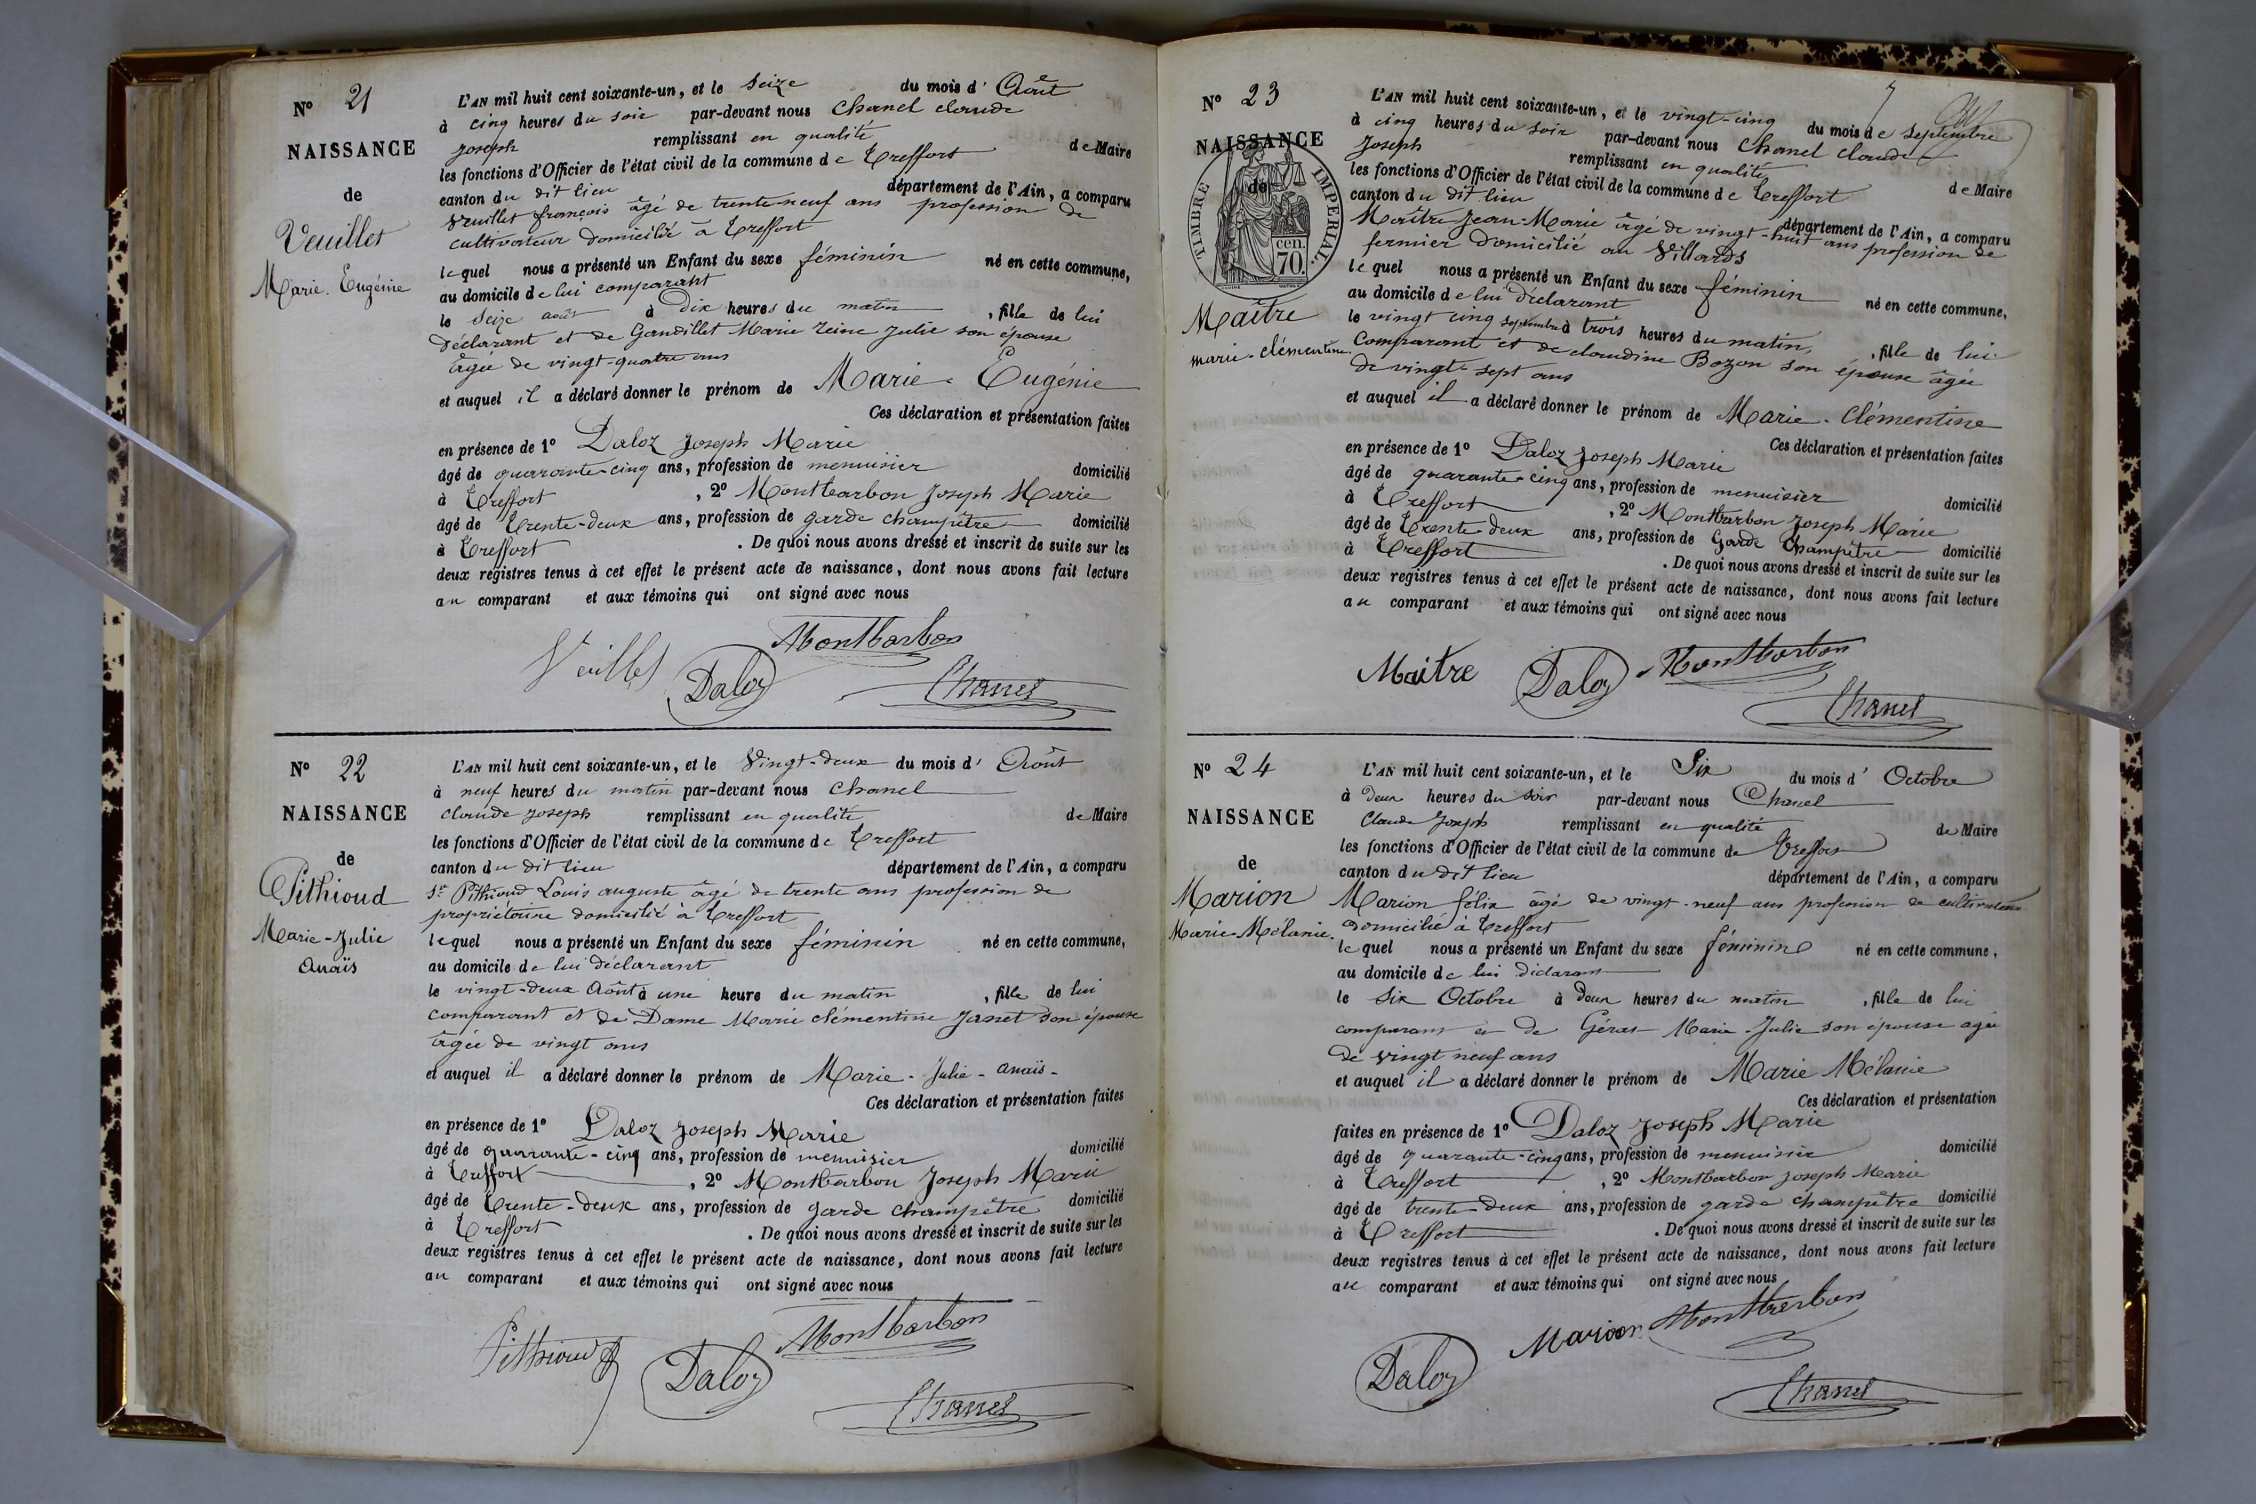 N° 21
NAISSANCE
de
Veuillet
Marie Eugénie
L'AN mil huit cent soixante-un, et le Seize du mois d' Août
à cinq heures du soir par-devant nous Chanel Claude
Joseph remplissant en qualité de Maire
les fonctions d'Officier de l'état civil de la commune de Treffort
canton du dit lieu département de l'Ain, a comparu
Veuillet françois âgé de trente neuf ans profession de
cultivateur domicilié à Treffort
lequel nous a présenté un Enfant du sexe féminin né en cette commune,
au domicile de lui comparant
le Seize août à Dix heures du matin, fille de lui
Déclarant et de Gandillet Marie Reine Julie son épouse
âgée de vingt-quatre ans
et auquel il a déclaré donner le prénom de Marie-Eugénie
Ces déclaration et présentation faites
en présence de 1° Daloz Joseph Marie
âgé de quarante-cinq ans, profession de menuisier domicilié
à Treffort, 2° Montbarbon Joseph Marie
âgé de Trente-deux ans, profession de garde champêtre domicilié
à Treffort. De quoi nous avons dressé et inscrit de suite sur les
deux registres tenus à cet effet le présent acte de naissance, dont nous avons fait lecture
au comparant et aux témoins qui ont signé avec nous
Veuillet Daloz Montbarbon
Chanel
N° 22
NAISSANCE
de
Pithioud
Marie-Julie
Anaïs
L'AN mil huit cent soixante-un, et le Vingt-deux du mois d' Août
à neuf heures du matin par-devant nous Chanel
Claude Joseph remplissant en qualité de Maire
les fonctions d'Officier de l'état civil de la commune de Treffort
canton du dit lieu département de l'Ain, a comparu
Sr Pithioud Louis auguste âgé de trente ans profession de
propriétaire domicilié à Treffort
lequel nous a présenté un Enfant du sexe féminin né en cette commune,
au domicile de lui déclarant
le vingt-deux Août à une heure du matin, fille de lui
comparant et de Dame Marie clémentine Janet son épouse
âgée de vingt ans
et auquel il a déclaré donner le prénom de Marie-Julie-anaïs-
Ces déclaration et présentation faites
en présence de 1° Daloz Joseph Marie
âgé de quarante-cinq ans, profession de menuisier domicilié
à Treffort, 2° Montbarbon Joseph Marie
âgé de Trente-deux ans, profession de garde champêtre domicilié
à Treffort. De quoi nous avons dressé et inscrit de suite sur les
deux registres tenus à cet effet le présent acte de naissance, dont nous avons fait lecture
au comparant et aux témoins qui ont signé avec nous
Pithioud Daloz Montbarbon
Chanel
N° 23
NAISSANCE
de
TIMBRE IMPERIAL.
70 cen.
Maître
marie-clémentine
L'AN mil huit cent soixante-un, et le vingt-cinq du mois de septembre
à cinq heures du soir par-devant nous Chanel Claude
Joseph remplissant en qualité de Maire
les fonctions d'Officier de l'état civil de la commune de Treffort
canton du dit lieu département de l'Ain, a comparu
Maître Jean-Marie âgé de vingt-huit ans profession de
fermier domicilié au Villards
lequel nous a présenté un Enfant du sexe féminin né en cette commune,
au domicile de lui Déclarant
le vingt cinq septembre à trois heures du matin, fille de lui
Comparant et de claudine Bozon son épouse âgée
de vingt-sept ans
et auquel il a déclaré donner le prénom de Marie-Clémentine
Ces déclaration et présentation faites
en présence de 1° Daloz Joseph Marie
âgé de quarante-cinq ans, profession de menuisier domicilié
à Treffort, 2° Montbarbon Joseph Marie
âgé de Trente-deux ans, profession de Garde Champêtre domicilié
à Treffort. De quoi nous avons dressé et inscrit de suite sur les
deux registres tenus à cet effet le présent acte de naissance, dont nous avons fait lecture
au comparant et aux témoins qui ont signé avec nous
Maitre Daloz Montbarbon
Chanel
N° 24
NAISSANCE
de
Marion
Marie-Mélanie.
L'AN mil huit cent soixante-un, et le Six du mois d' Octobre
à Deux heures du soir par-devant nous Chanel
Claude Joseph remplissant en qualité de Maire
les fonctions d'Officier de l'état civil de la commune de Treffort
canton du dit lieu département de l'Ain, a comparu
Marion félix âgé de vingt-neuf ans profession de cultivateur
domicilié à Treffort
lequel nous a présenté un Enfant du sexe féminin né en cette commune,
au domicile de lui déclarant
le Six Octobre à Deux heures du matin, fille de lui
comparant et de Géras Marie Julie son épouse agée
de vingt neuf ans
et auquel il a déclaré donner le prénom de Marie Mélanie
Ces déclaration et présentation
faites en présence de 1° Daloz Joseph Marie
âgé de quarante-cinq ans, profession de menuisier domicilié
à Treffort, 2° Montbarbon Joseph Marie
âgé de trente-deux ans, profession de garde champêtre domicilié
à Treffort. De quoi nous avons dressé et inscrit de suite sur les
deux registres tenus à cet effet le présent acte de naissance, dont nous avons fait lecture
au comparant et aux témoins qui ont signé avec nous
Daloz Marion Montbarbon
Chanel